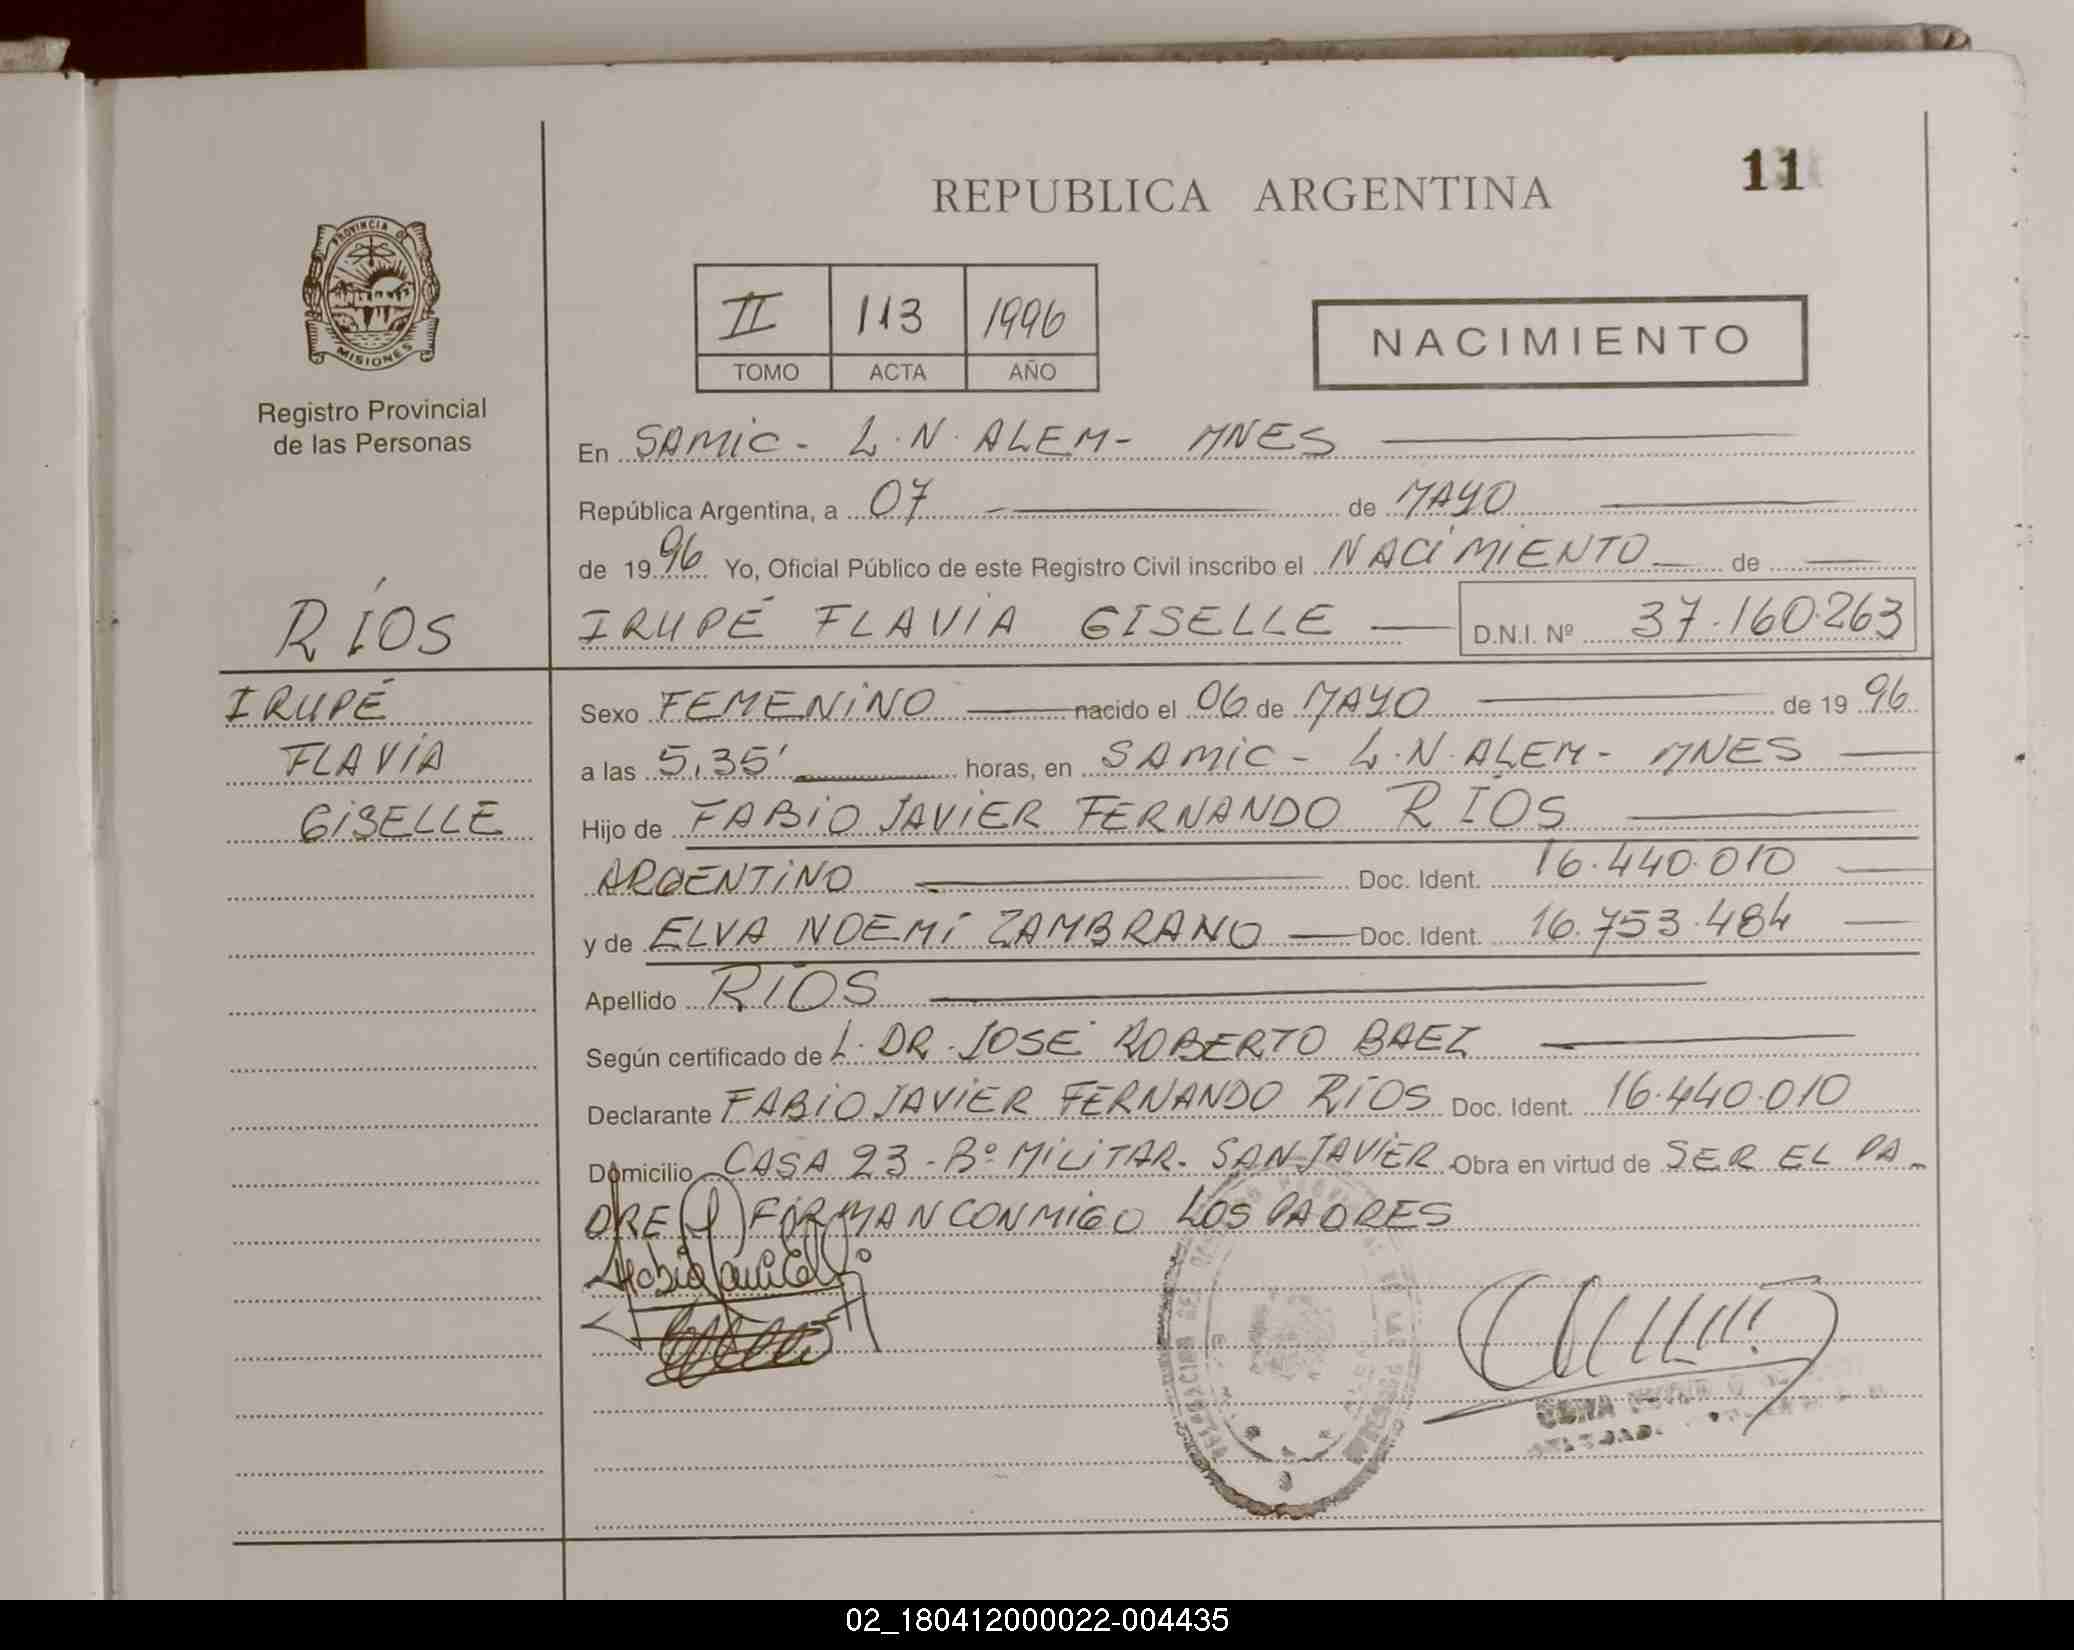 11
REPUBLICA ARGENTINA
PROVINCIA DE
MISIONES
Registro Provincial
de las Personas
II 113 1996
TOMO ACTA AÑO
NACIMIENTO
En SAMIC - L.N. ALEM - MNES
República Argentina, a 07 de MAYO
de 1996 Yo, Oficial Público de este Registro Civil inscribo el NACIMIENTO de
RÍOS
IRUPÉ FLAVIA GISELLE D.N.I. Nº 37.160.263
IRUPÉ
FLAVIA
GISELLE
Sexo FEMENINO nacido el 06 de MAYO de 1996
a las 5,35' horas, en SAMIC - L.N. ALEM - MNES
Hijo de FABIO JAVIER FERNANDO RÍOS
ARGENTINO Doc. Ident. 16.440.010
y de ELVA NOEMÍ ZAMBRANO Doc. Ident. 16.753.484
Apellido RÍOS
Según certificado de L. DR. JOSÉ ROBERTO BAEZ
Declarante FABIO JAVIER FERNANDO RÍOS Doc. Ident. 16.440.010
Domicilio CASA 23 - Bº MILITAR. SAN JAVIER Obra en virtud de SER EL PA-
DRE FIRMAN CONMIGO LOS PADRES
02_180412000022-004435